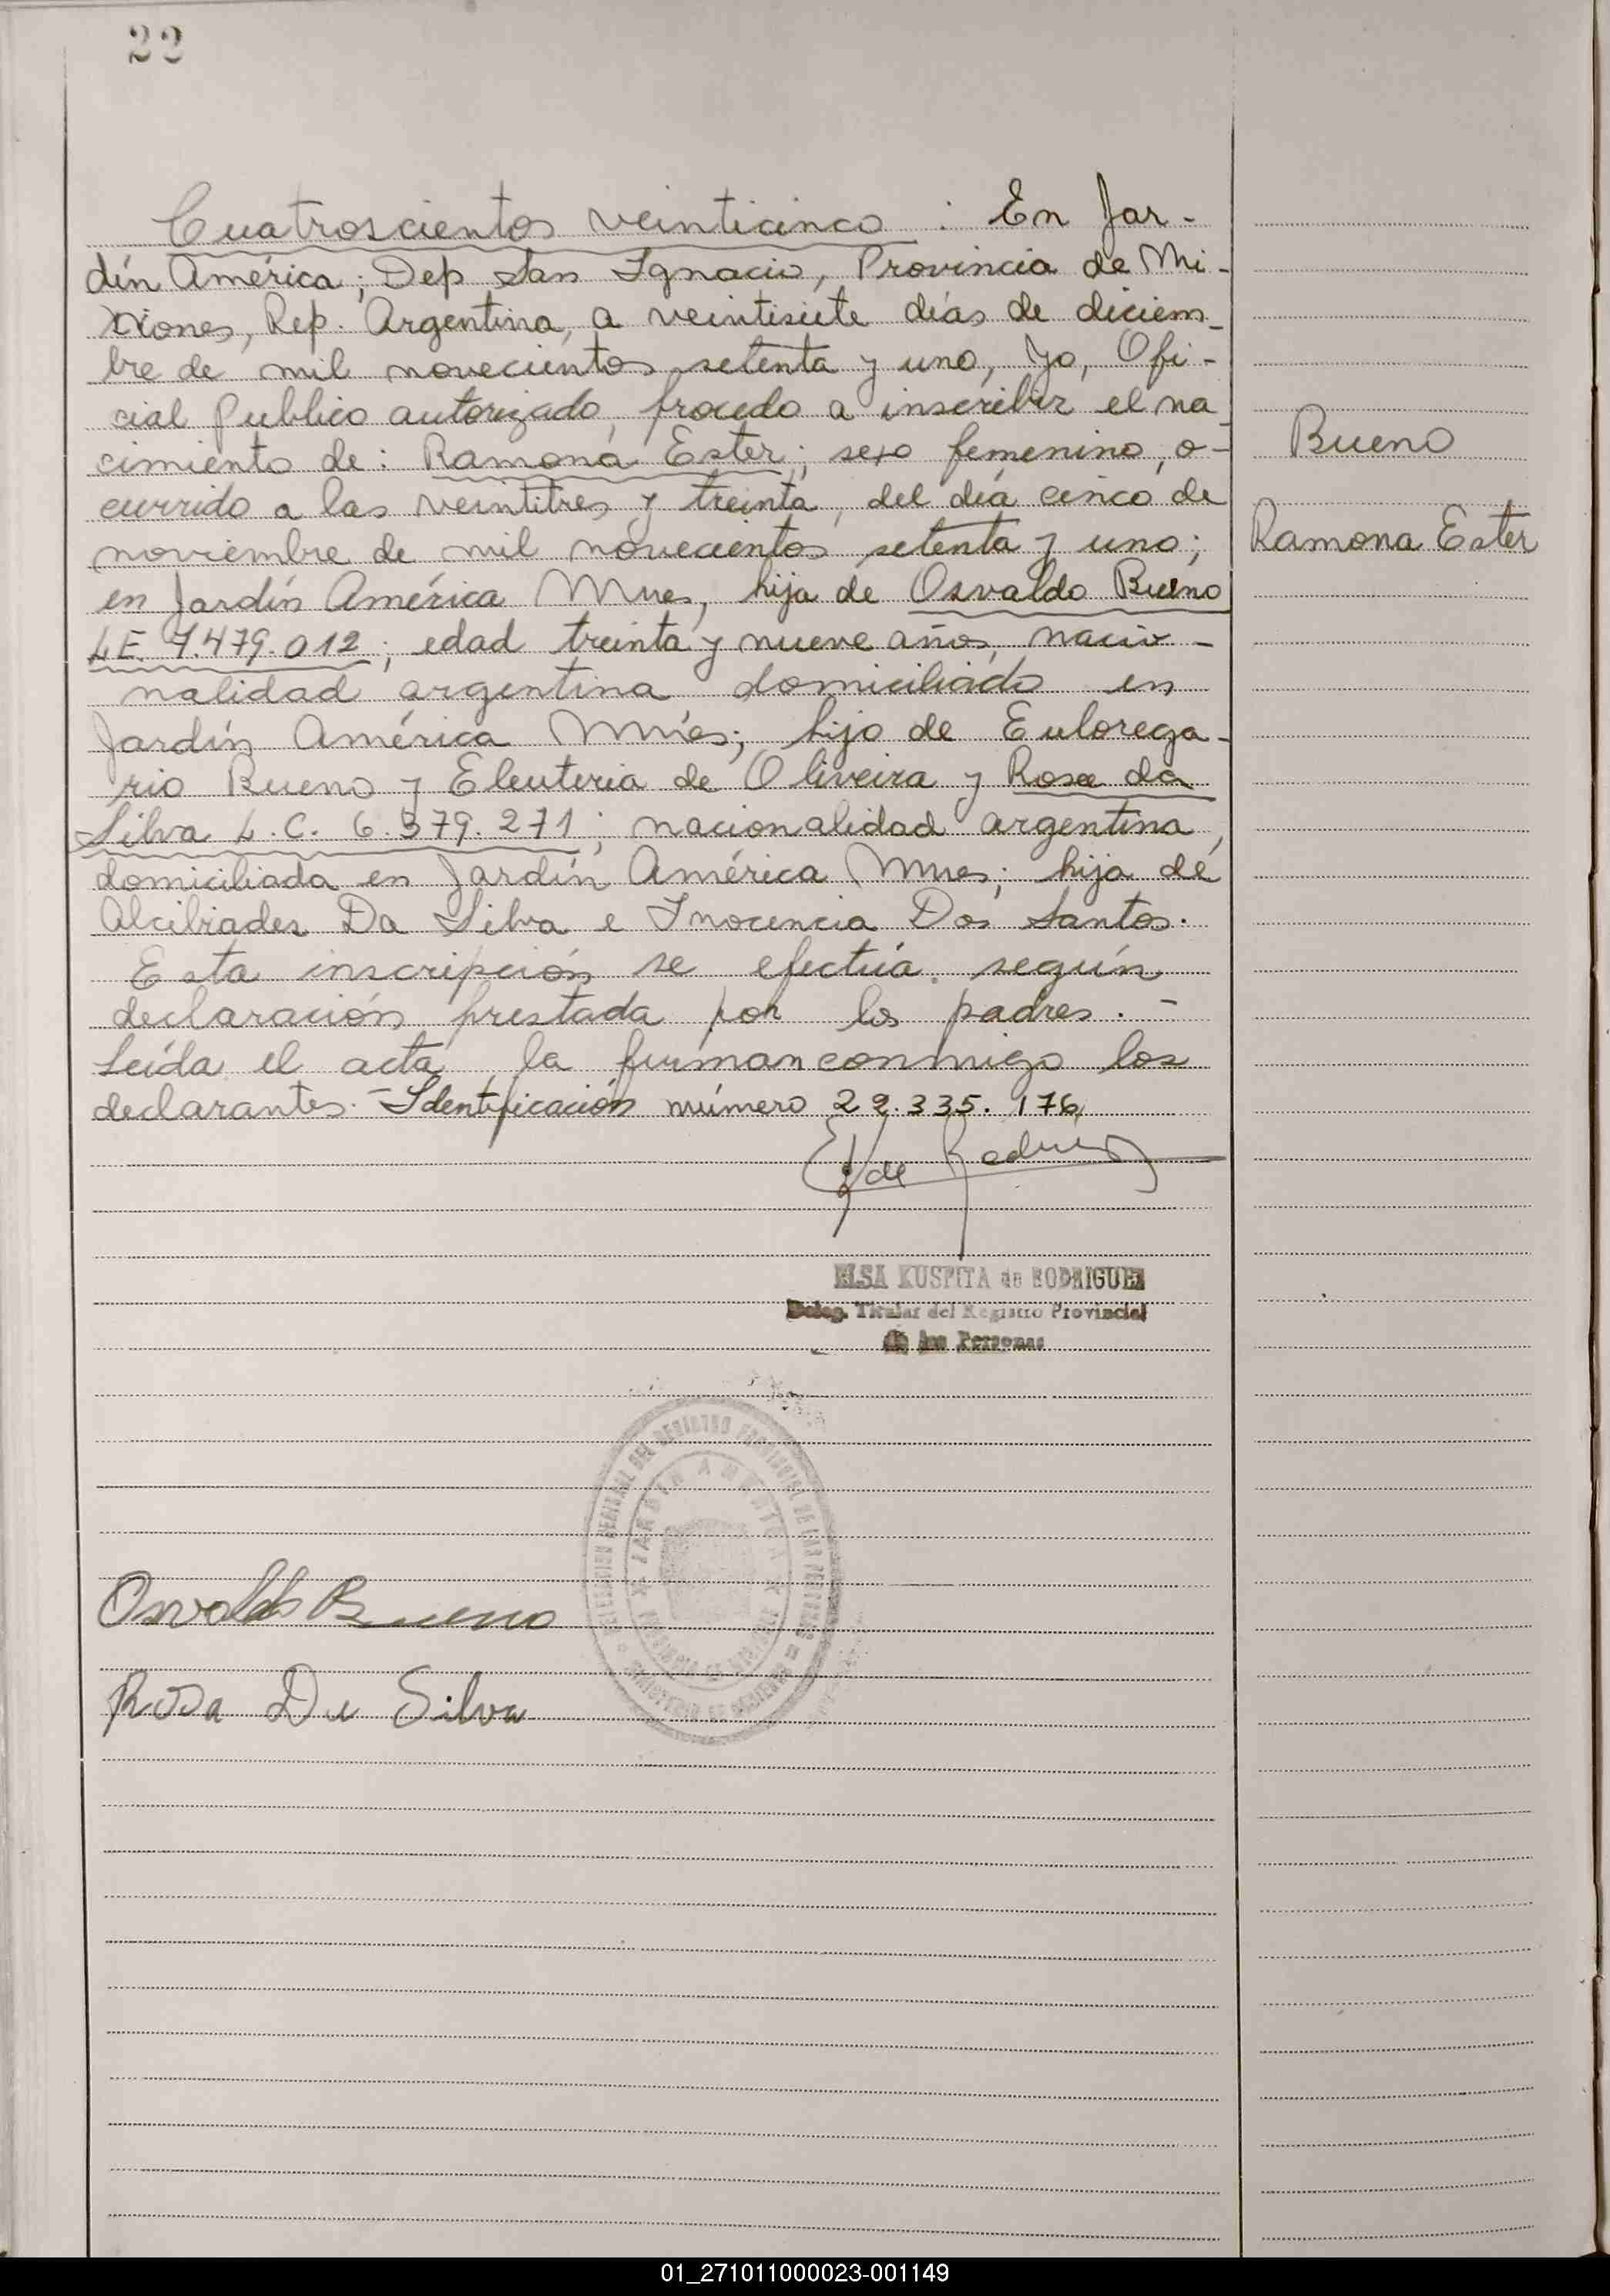 22
Cuatroscientos veinticinco : En Jar-
dín América; Dep San Ignacio, Provincia de Mi-
siones, Rep. Argentina, a veintisiete días de diciem-
bre de mil novecientos setenta y uno, Yo, Ofi-
cial Publico autorizado, procedo a inscribir el na-
cimiento de: Ramona Ester; sexo femenino, o-
currido a las veintitres y treinta, del día cinco de
noviembre de mil novecientos setenta y uno;
en Jardín América Mnes, hija de Osvaldo Bueno
L.E. 7.479.012; edad treinta y nueve años, nacio-
nalidad argentina domiciliado en
Jardín América Mnes; hijo de Eulorega-
rio Bueno y Eleuteria de Oliveira y Rosa da
Silva L.C. 6.379.271; nacionalidad argentina,
domiciliada en Jardín América Mnes; hija de
Alcibiades Da Silva e Inocencia Dos Santos.
Esta inscripción se efectúa según
declaración prestada por los padres. -
Leída el acta la firman conmigo los
declarantes.- Identificación número 22.335.176
Bueno
Ramona Ester
ELSA KUSPITA de RODRIGUEZ
Deleg. Titular del Registro Provincial
de las Personas
JARDIN AMERICA
Osvaldo Bueno
Rosa Da Silva
01_271011000023-001149